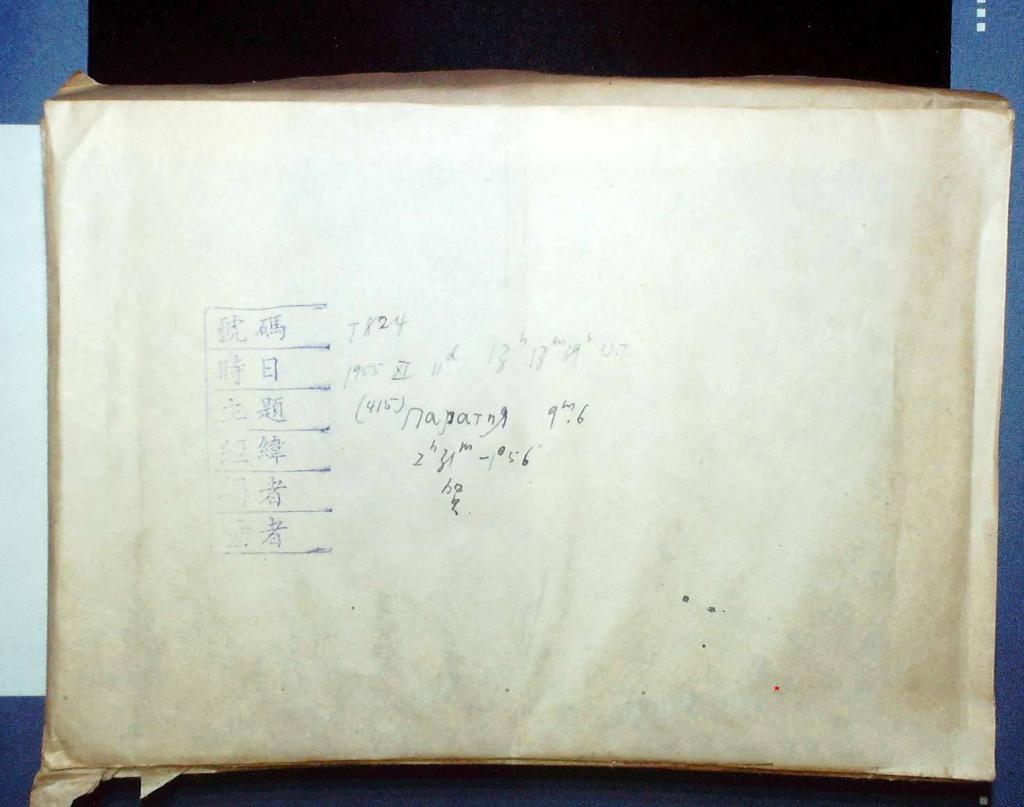 號碼 T824
時日 1955 XI 11ᵈ 13ʰ 13ᵐ 39ˢ U.T.
主題 (415) Паратия 9ᵐ.6
經緯 2ʰ 31ᵐ -1°56
者 贺
者